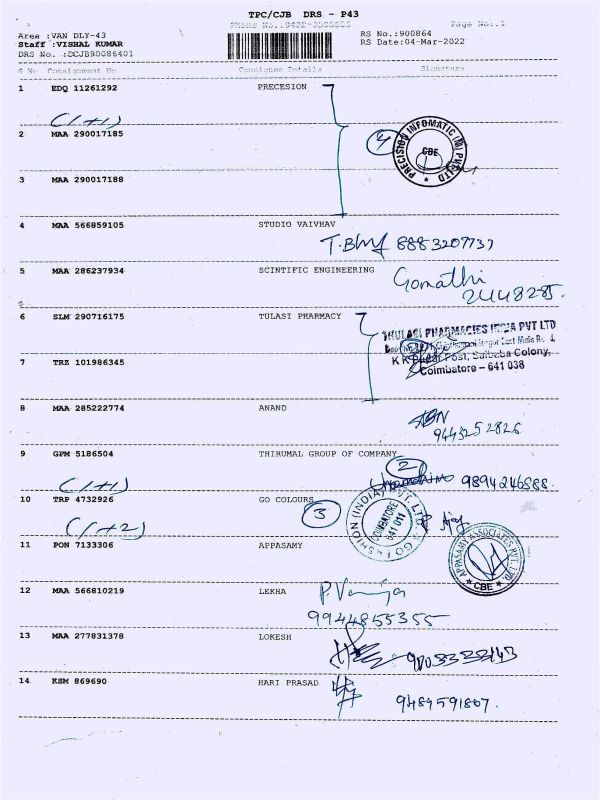 TPC/CJB DRS - P43
Page No.:1
Area :VAN DLY-43
Staff :VISHAL KUMAR
DRS No. :DCJB90086401
RS No.:900864
RS Date:04-Mar-2022
S No Consignment No Consignee Details Signature
1 EDQ 11261292 PRECESION
(1+1)
2 MAA 290017185
4
PRECISION INFOMATIC (M) PVT LTD
CBE
3 MAA 290017188
4 MAA 566859105 STUDIO VAIVHAV
8883207737
5 MAA 286237934 SCINTIFIC ENGINEERING
Gomathi
2448285.
6 SLM 290716175 TULASI PHARMACY
THULASI PHARMACIES INDIA PVT LTD
Post, Saibaba Colony,
Coimbatore - 641 038
7 TRZ 101986345
8 MAA 285222774 ANAND
9443252826
9 GPM 5186504 THIRUMAL GROUP OF COMPANY
2
(1+1)
9894246888.
10 TRP 4732926 GO COLOURS
3
(1+2)
GO FASHION (INDIA) PVT. LTD.
COIMBATORE
641 011
11 PON 7133306 APPASAMY
APPASAMY ASSOCIATES PVT. LTD.
CBE
12 MAA 566810219 LEKHA
9944855355
13 MAA 277831378 LOKESH
14 KSM 869690 HARI PRASAD
9489591807.